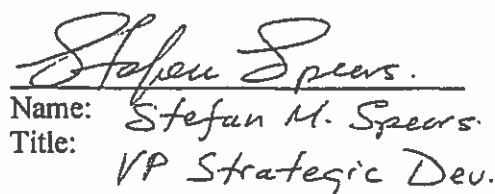 Stefan Spears.
Name: Stefan M. Spears.
Title: VP Strategic Dev.